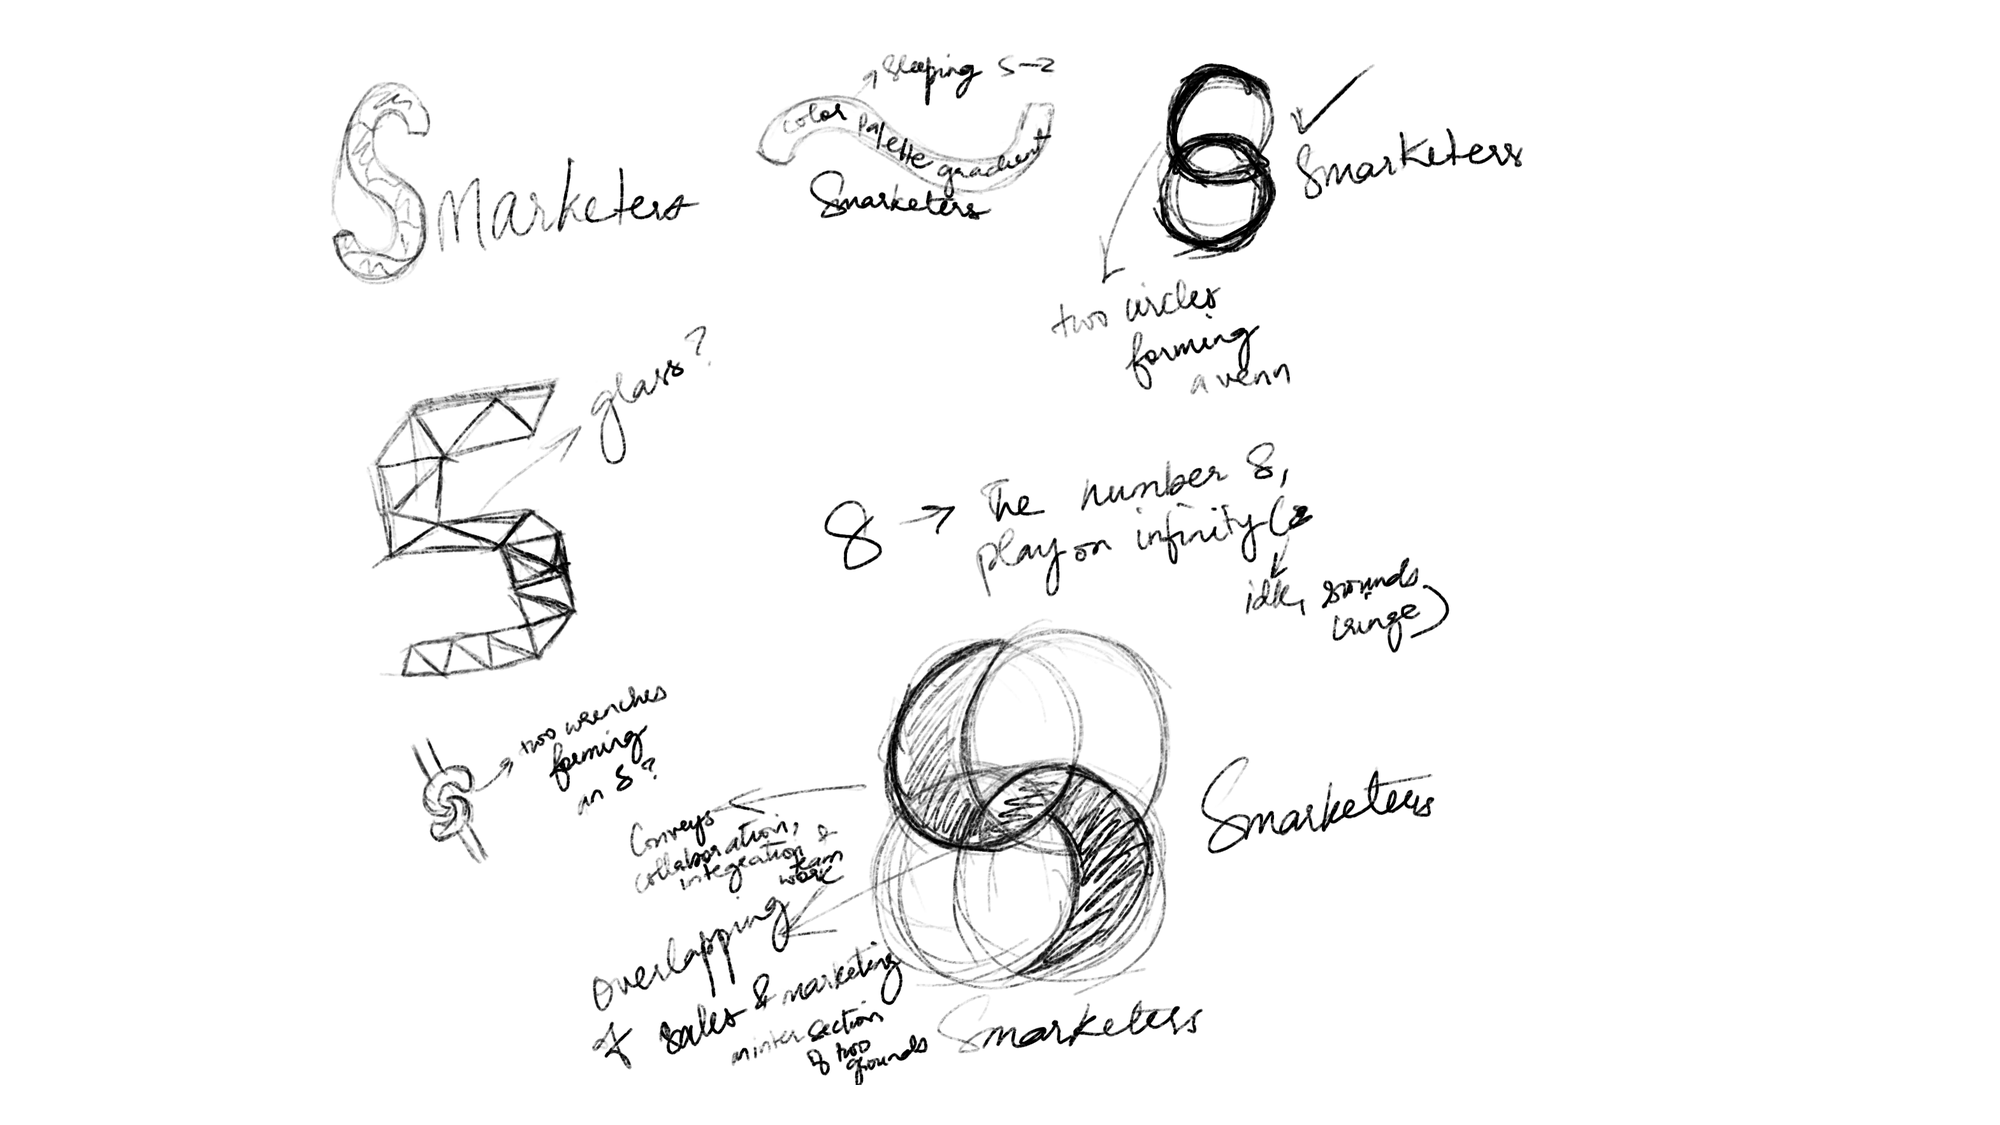 Smarketers
sleeping S-2
color palette gradient
Smarketers
Smarketers
two circles
forming
a venn
glass?
8 → The number 8,
play on infinity (
idk, sounds
cringe)
two wrenches
forming
an S?
Conveys
collaboration,
integration &
team
work
overlapping
of sales & marketing
intersection
of two
grounds
Smarketers
Smarketers